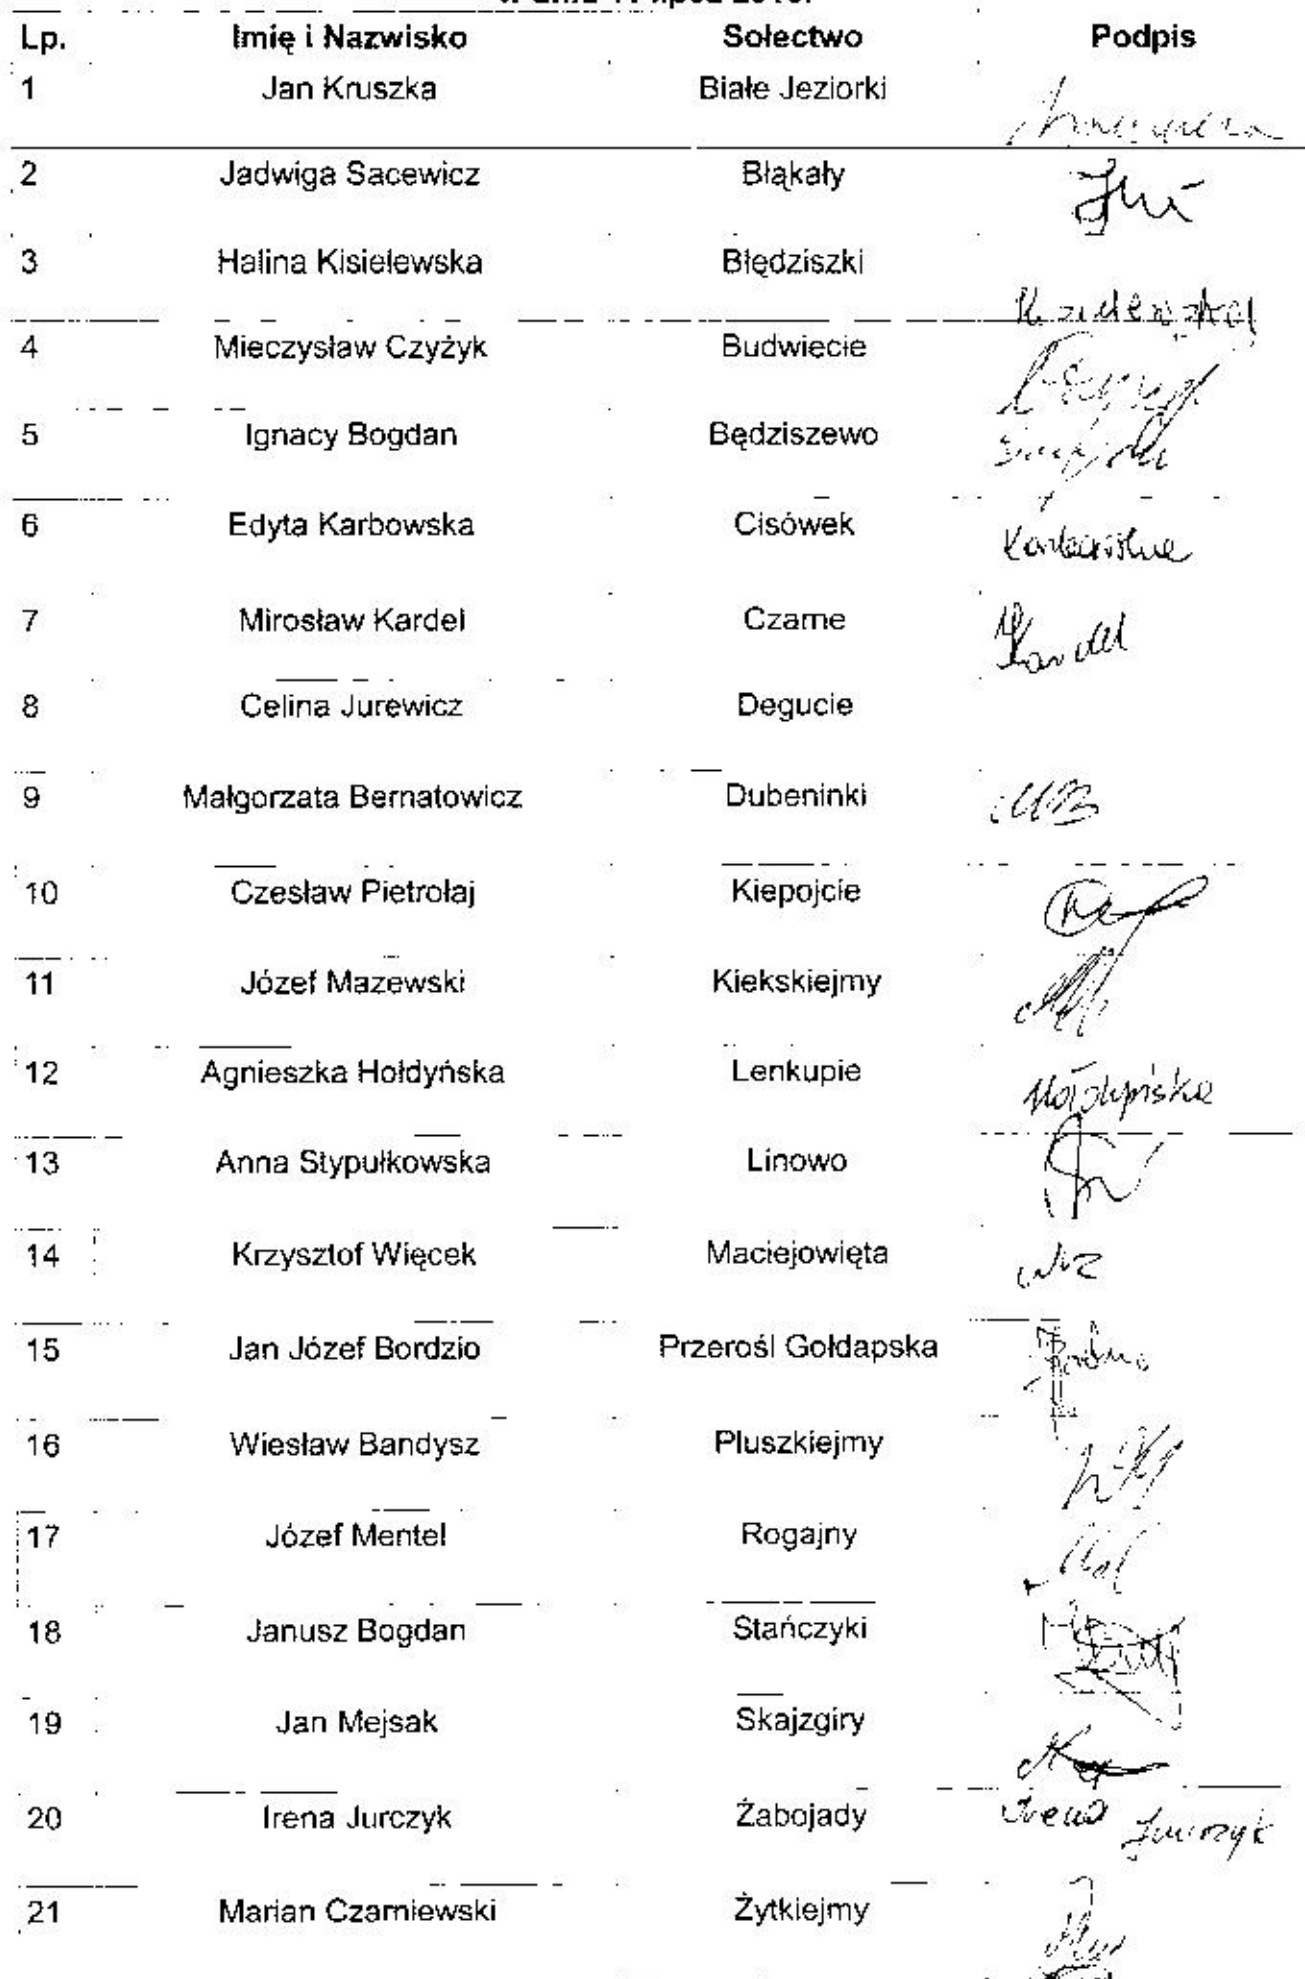 Lp. Imię i Nazwisko Sołectwo Podpis
1 Jan Kruszka Białe Jeziorki
2 Jadwiga Sacewicz Błąkały
3 Halina Kisielewska Błędziszki
4 Mieczysław Czyżyk Budwiecie
5 Ignacy Bogdan Będziszewo
6 Edyta Karbowska Cisówek Karbowska
7 Mirosław Kardel Czarne Kardel
8 Celina Jurewicz Degucie
9 Małgorzata Bernatowicz Dubeninki MB
10 Czesław Pietrołaj Kiepojcie
11 Józef Mazewski Kiekskiejmy
12 Agnieszka Hołdyńska Lenkupie Hołdyńska
13 Anna Stypułkowska Linowo
14 Krzysztof Więcek Maciejowięta
15 Jan Józef Bordzio Przerośl Gołdapska
16 Wiesław Bandysz Pluszkiejmy
17 Józef Mentel Rogajny
18 Janusz Bogdan Stańczyki
19 Jan Mejsak Skajzgiry
20 Irena Jurczyk Żabojady Irena Jurczyk
21 Marian Czarniewski Żytkiejmy